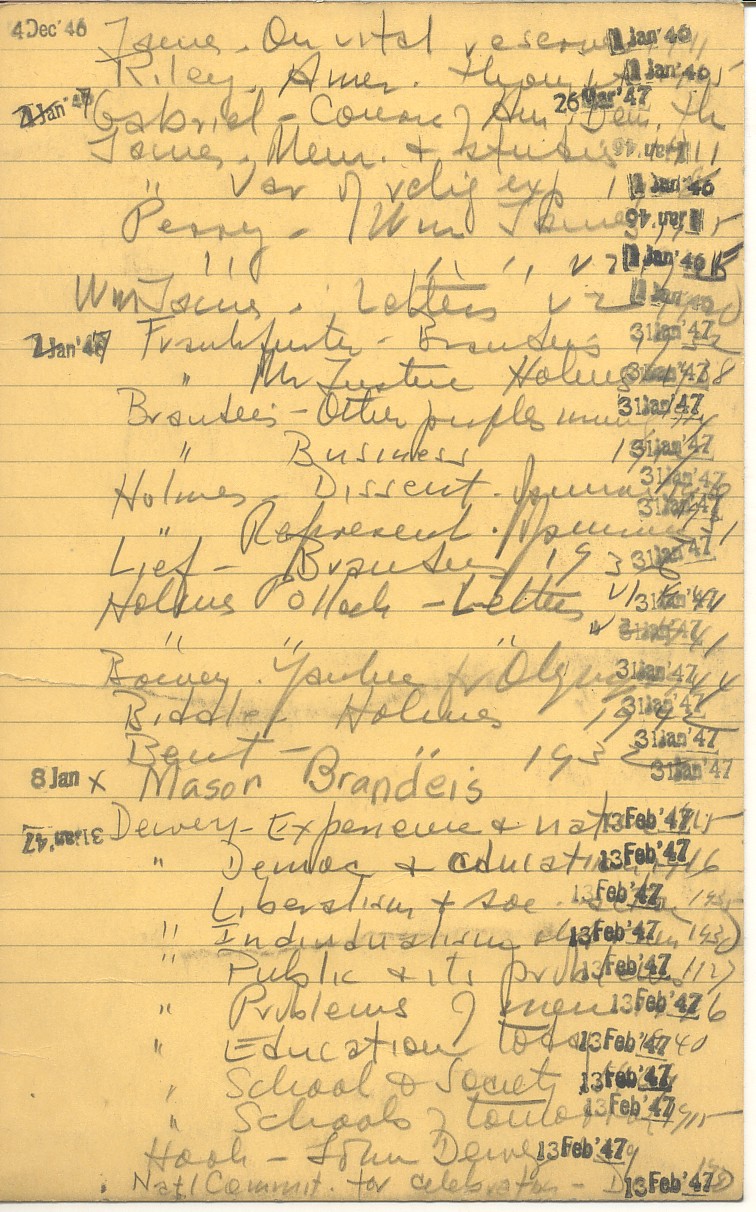 4 Dec '46 James. On vital reserves 1 Jan '46 1911
Riley. Amer. thought 1 Jan '46
1 Jan '47 Gabriel - Course of Am. Dem. Th 26 Mar '47
James. Mem. & studies 1 Jan '46 1911
" Var of relig exp 1 Jan '46
Perry - Wm James 1 Jan '46
" " " v 2 1 Jan '46
Wm James. Letters v 2 1 Jan '46
2 Jan '47 Frankfurter - Brandeis 31 Jan '47 1932
" Mr Justice Holmes 31 Jan '47
Brandeis - Other peoples money 31 Jan '47
" Business 31 Jan '47
Holmes - Dissent. 31 Jan '47
" Represent. 31 Jan '47
Lief - Brandeis 193 31 Jan '47
Holmes Pollock - Letters v 1 31 Jan '47
" " " 31 Jan '47
Yankee fr Olympus 31 Jan '47
Biddle - Holmes 194 31 Jan '47
Bent - " 1932 31 Jan '47
8 Jan x Mason Brandeis 31 Jan '47
31 Jan '47 Dewey - Experience & nat 13 Feb '47
" Democ & education 13 Feb '47 1916
Liberalism & soc. 13 Feb '47 1935
" Individualism 13 Feb '47 1930
" Public & its problems 13 Feb '47 1927
" Problems of men 13 Feb '47
" Education today 13 Feb '47 1940
" School & Society 13 Feb '47
" Schools of tomorrow 13 Feb '47 1915
Hook - John Dewey 13 Feb '47
Natl Commit. for celebration - 13 Feb '47